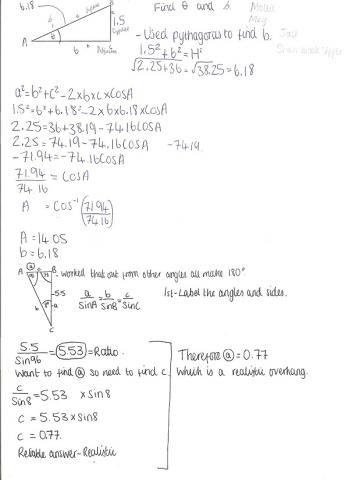 6.18
Find θ and b.
Mollie
Meg
Jack
B
A
θ
b
c
6
1.5
Hyp
Opposite
Adjacent
- Used pythagoras to find b.
1.5² + b² = H²
√2.25+36 = √38.25 = 6.18
a² = b² + c² - 2 x b x c x cosA
1.5² = 6² + 6.18² - 2 x 6 x 6.18 x cosA
2.25 = 36 + 38.19 - 74.16 cosA
2.25 = 74.19 - 74.16 cosA  - 74.19
-71.94 = -74.16 cosA
71.94/74.16 = cosA
A = cos⁻¹ (71.94/74.16)
A = 14.05
b = 6.18
A
B
C
5.5
- worked that out from other angles all make 180°
a/sinA = b/sinB = c/sinC
1st - Label the angles and sides.
5.5/sin96 = 5.53 = Ratio.
Want to find ⓐ so need to find c.
c/sin8 = 5.53 x sin8
c = 5.53 x sin8
c = 0.77.
Reliable answer - Realistic
Therefore ⓐ = 0.77
which is a realistic overhang.